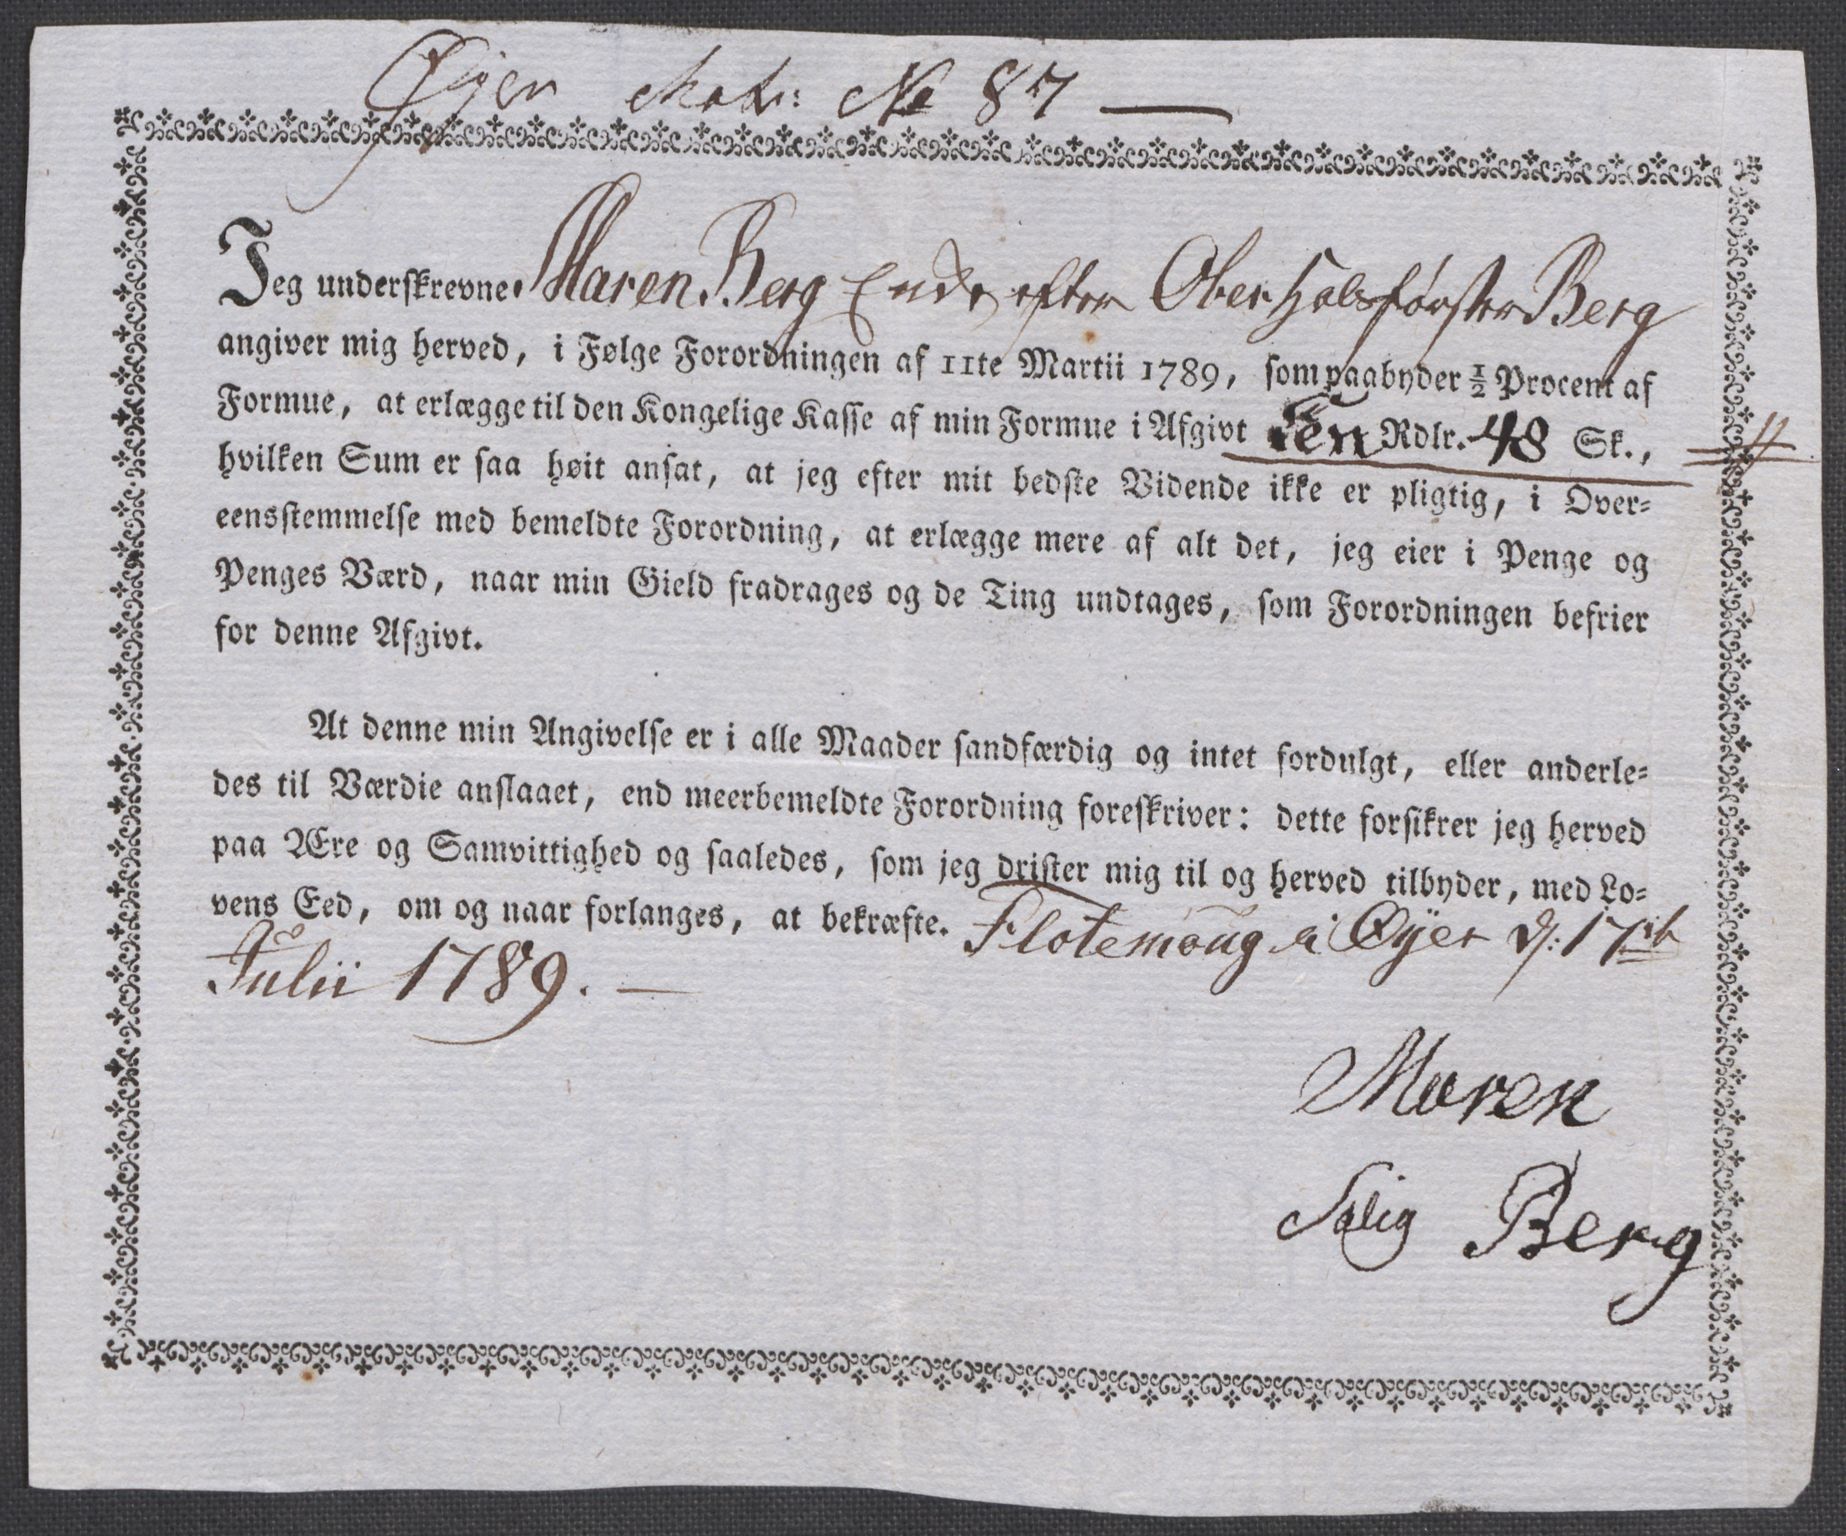 Øijer Matr: No 87 —
Jeg underskrevne Maren Berg Enke efter Ober Holtzførster Berg
angiver mig herved, i Følge Forordningen af 11te Martii 1789, som paabyder ½ Procent af
Formue, at erlægge til den Kongelige Kasse af min Formue i Afgivt Een Rdlr. 48 Sk.,
hvilken Sum er saa høit ansat, at jeg efter mit bedste Vidende ikke er pligtig, i Over-
eensstemmelse med bemeldte Forordning, at erlægge mere af alt det, jeg eier i Penge og
Penges Værd, naar min Gield fradrages og de Ting undtages, som Forordningen befrier
for denne Afgivt.
At denne min Angivelse er i alle Maader sandfærdig og intet fordulgt, eller anderle-
des til Værdie anslaaet, end meerbemeldte Forordning foreskriver: dette forsikrer jeg herved
paa Ære og Samvittighed og saaledes, som jeg drister mig til og herved tilbyder, med Lo-
vens Eed, om og naar forlanges, at bekræfte. Flotemoug i Øyer d: 17de
Julii 1789. —
Maren
Salig Berg